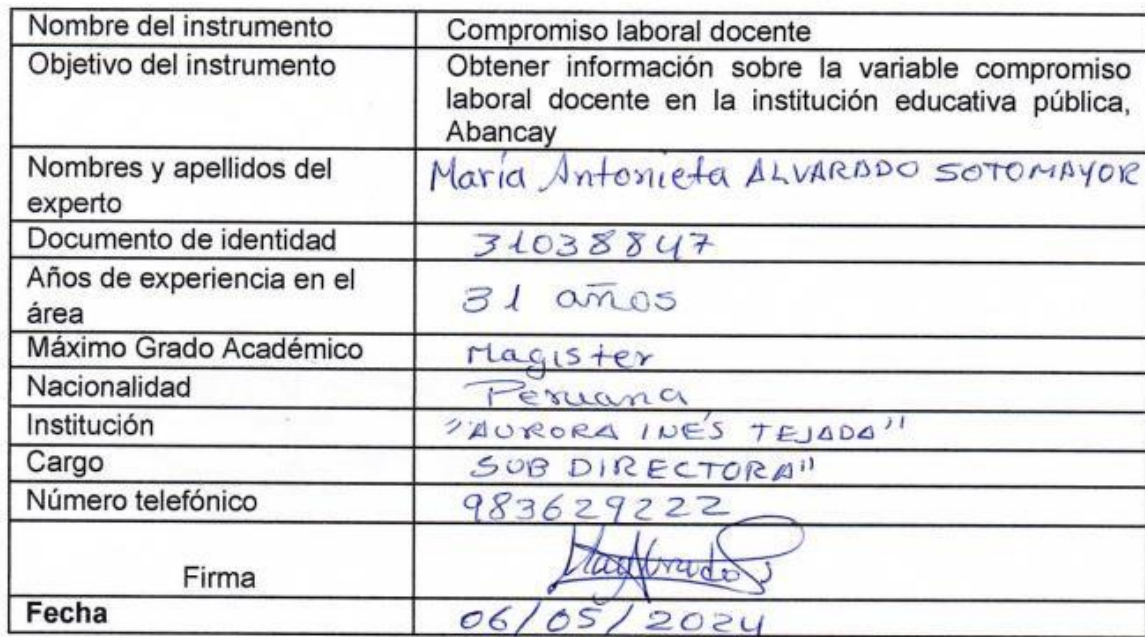 Nombre del instrumento Compromiso laboral docente
Objetivo del instrumento Obtener información sobre la variable compromiso
laboral docente en la institución educativa pública,
Abancay
Nombres y apellidos del María Antonieta ALVARADO SOTOMAYOR
experto
Documento de identidad 31038847
Años de experiencia en el 31 años
área
Máximo Grado Académico Magister
Nacionalidad Peruana
Institución "AURORA INÉS TEJADA"
Cargo SUB DIRECTORA"
Número telefónico 983629222
Firma
Fecha 06/05/2024